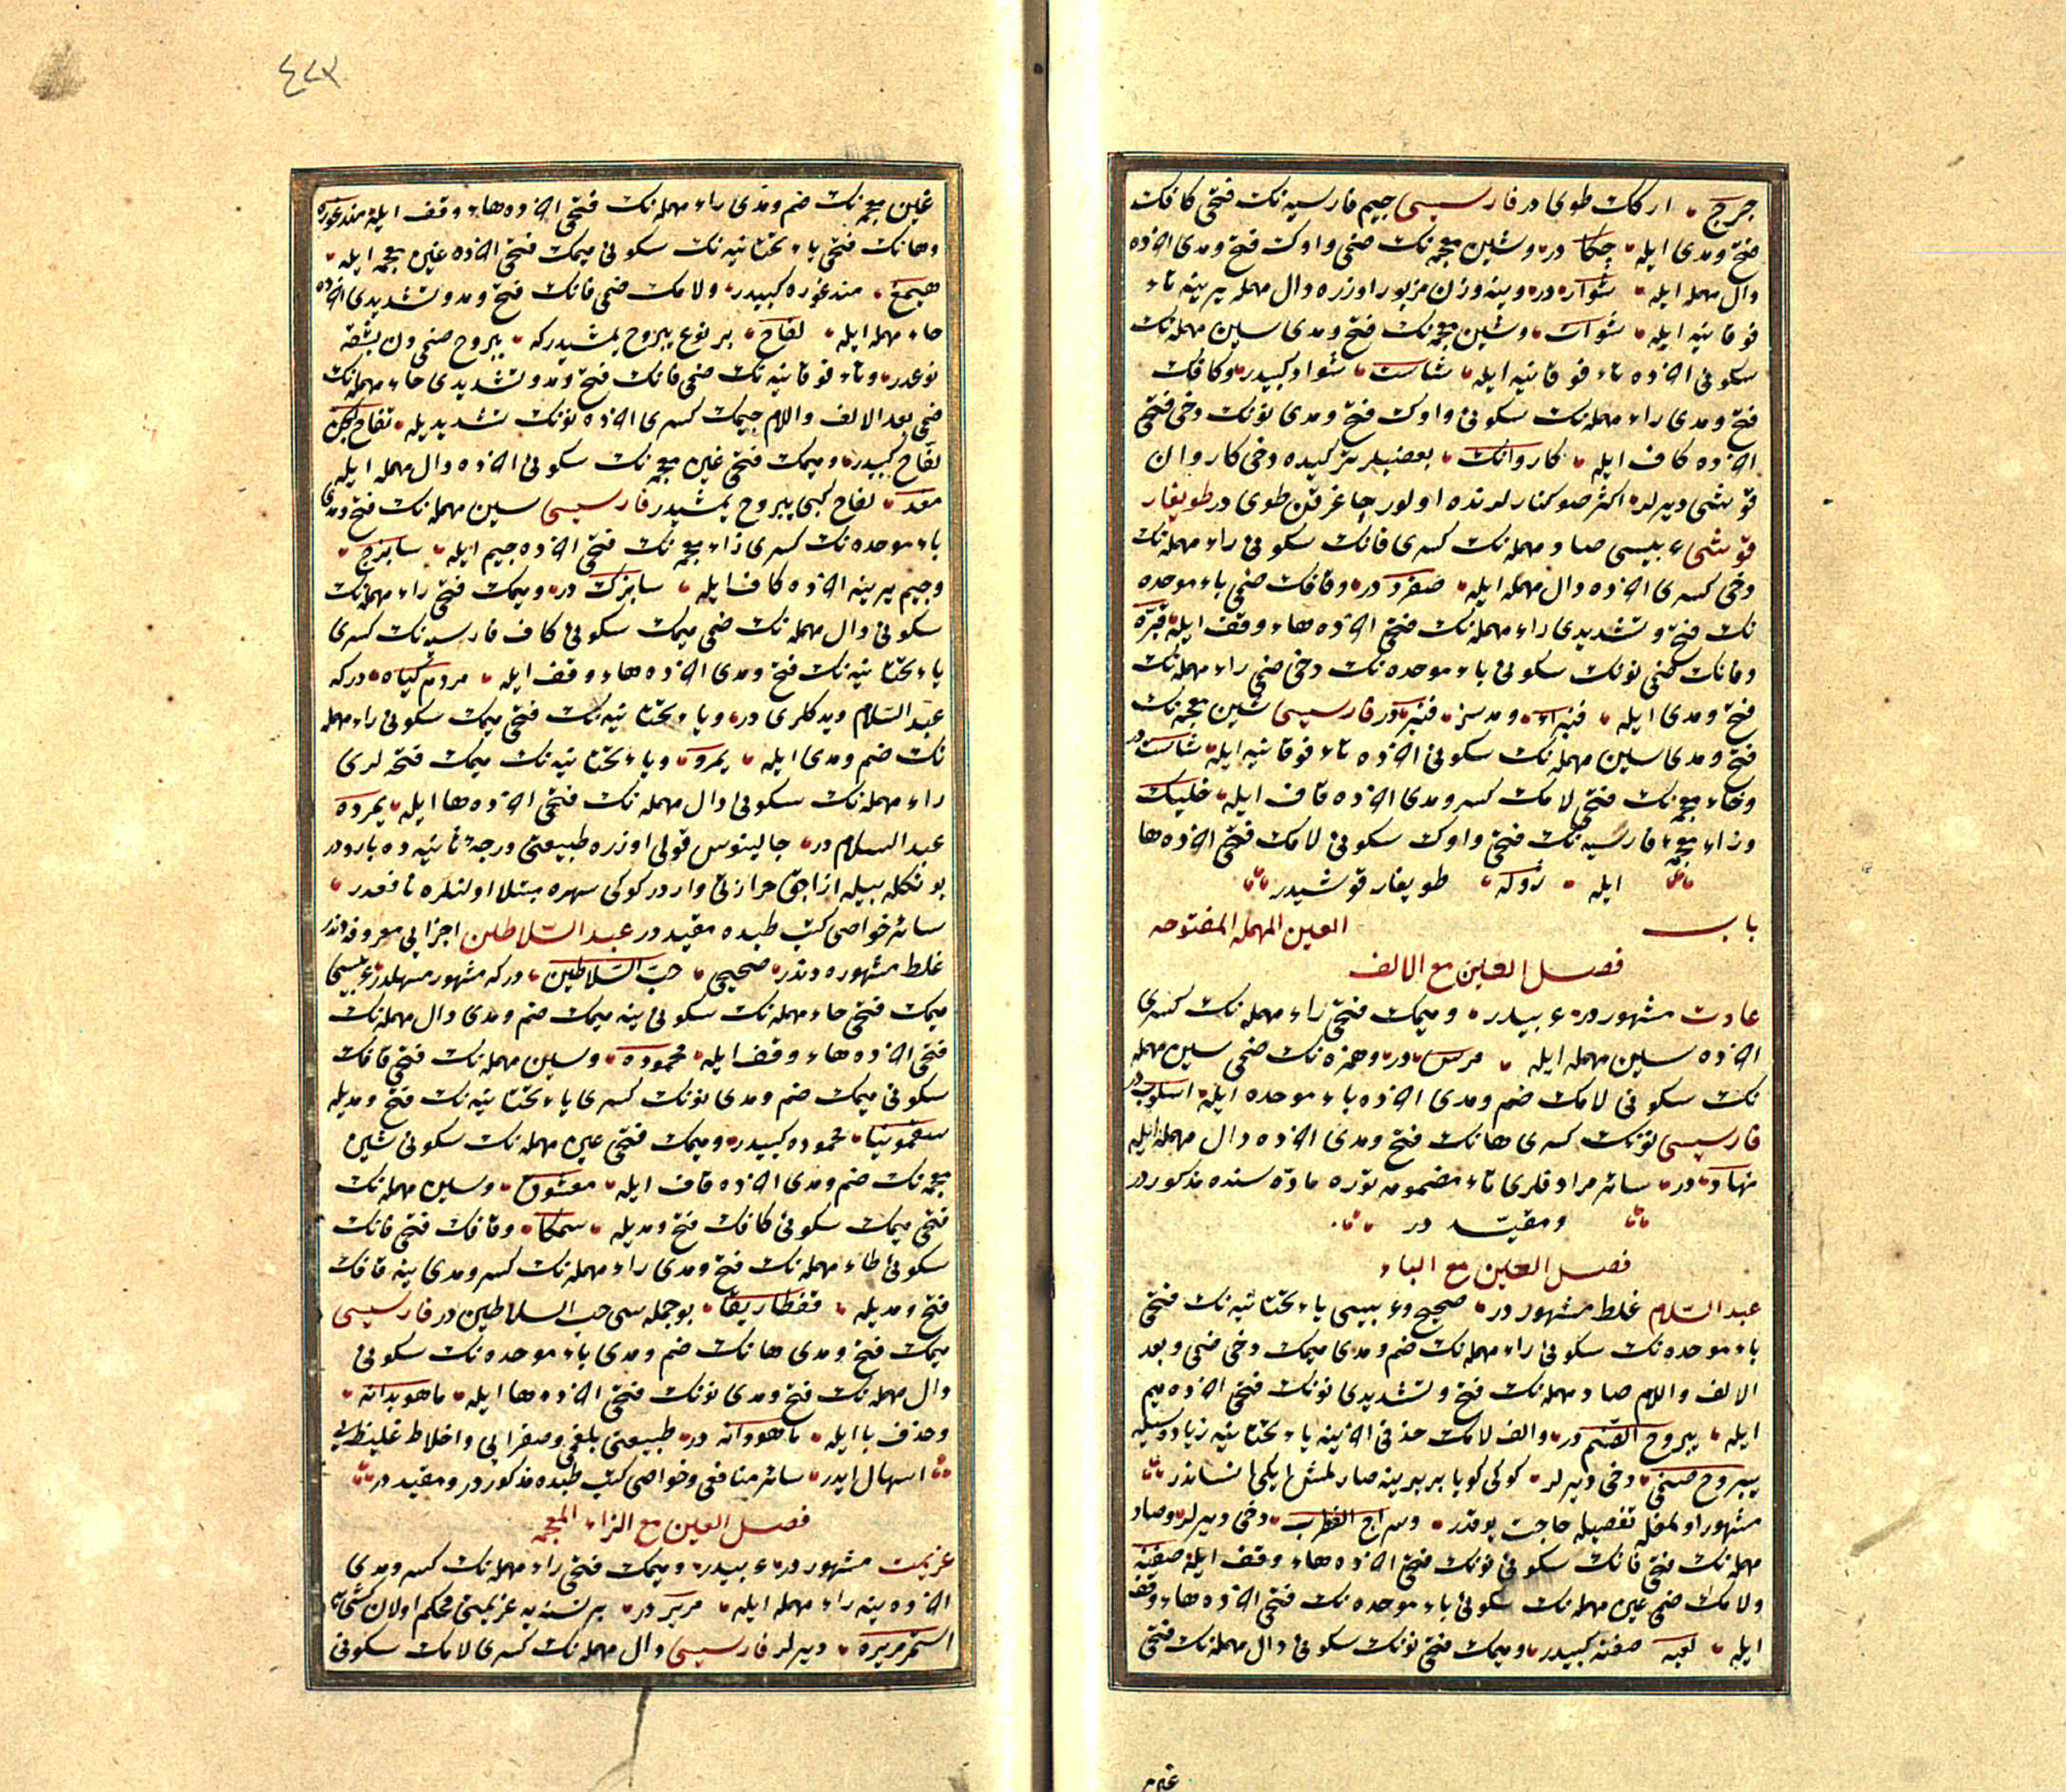 جرج ارككك طوى در فارسيسى جيم فارسيه نك فتحى كافك
فتح ومدى ايله جكا در وشين معجمه نك ضمى واوك فتح ومدى اخرده
دال مهمله ايله شوار در وينه وزن مزبور اوزره دال مهمله يرينه تاء
فوقانيه ايله شوات وشين معجمه نك فتح ومدى سين مهمله نك
سكونى اخرده تاء فوقانيه ايله شاست شواد كبيدر وكافك
فتح ومدى راء مهمله نك سكونى واوك فتح ومدى نونك دخى فتحى
اخرده كاف ايله كاروانك بعضيلر تركيده دخى كاروان
قوشى ديرلر اكثر صو كنارلرنده اولور چاغرقن طوى در طويغار
قوشى ع بيسى صاد مهمله نك كسرى فانك سكونى راء مهمله نك
دخى كسرى اخرده دال مهمله ايله صفرد در وقافك ضمى باء موحده
نك فتح وتشديدى راء مهمله نك فتحى اخرده هاء وقف ايله قبره
وقافك ضمى نونك سكونى باء موحده نك دخى ضمى راء مهمله نك
فتح ومدى ايله قنبراء ومدسز قنبر در فارسيسى شين معجمه نك
فتح ومدى سين مهمله نك سكونى اخرده تاء فوقانيه ايله شاست در
وخاء معجمه نك فتحى لامك كسر ومدى اخرده قاف ايله خليك
وزاء معجمه فارسيه نك فتحى واوك سكونى لامك فتحى اخرده ها
ايله ژوله طويغار قوشيدر
باب العين المهملة المفتوحه
فصل العين مع الالف
عادت مشهور در ع بيدر وميمك فتحى راء مهمله نك كسرى
اخرده سين مهمله ايله مرس در وهمزه نك ضمى سين مهمله
نك سكونى لامك ضم ومدى اخرده باء موحده ايله اسلوب در
فارسيسى نونك كسرى هانك فتح ومدى اخرده دال مهمله ايله
نهاد در سائر مرادفلرى تاء مضمومه توره ماده سنده مذكور در
ومقيد در
فصل العين مع الباء
عبد السلام غلط مشهور در صحيح وع بيسى ياء تحتانيه نك فتحى
باء موحده نك سكونى راء مهمله نك ضم ومدى ميمك دخى ضمى وبعد
الالف واللام صاد مهمله نك فتح وتشديدى نونك فتحى اخرده ميم
ايله يبروح الصنم در والف لامك حذفى اخرينه ياء تحتانيه زياده سيله
يبروح صنمى دخى ديرلر كوكى كويا بربرينه صارلمش ايكى انساندر
مشهور اولمغله تفصيله حاجت يوقدر وسراج القطرب دخى ديرلر وصاد
مهمله نك فتحى فانك سكونى نونك فتحى اخرده هاء وقف ايله صفنه
ولامك ضمى عين مهمله نك سكونى باء موحده نك فتحى اخرده هاء وقف
ايله لعبه صفنه كبيدر وميمك فتحى نونك سكونى دال مهمله نك فتحى
غين
٤٢٣
غين معجمه نك ضم ومدى راء مهمله نك فتحى اخرده هاء وقف ايله مندغوره
وهانك فتحى ياء تحتانيه نك سكونى ميمك فتحى اخرده غين معجمه ايله
هيمغ مندغوره كبيدر ولامك ضمى فانك فتح ومد وتشديدى اخرده
حاء مهمله ايله لفاح بر نوع يبروح يمشيدركه يبروح صنمى دن بشقه
نوعدر وتاء فوقانيه نك ضمى فانك فتح ومد وتشديدى حاء مهمله نك
ضمى بعد الالف واللام جيمك كسرى اخرده نونك تشديديله تفاح الجن
لفاح كبيدر وميمك فتحى غين معجمه نك سكونى اخرده دال مهمله ايله
مغد لفاح كبى يبروح يمشيدر فارسيسى سين مهمله نك فتح ومدى
باء موحده نك كسرى زاء معجمه نك فتحى اخرده جيم ايله سابزج
وجيم يرينه اخرده كاف ايله سابزك در وميمك فتحى راء مهمله نك
سكونى دال مهمله نك ضمى ميمك سكونى كاف فارسيه نك كسرى
ياء تحتانيه نك فتح ومدى اخرده هاء وقف ايله مردم كياه دركه
عبد السلام ديدكلرى در وياء تحتانيه نك فتحى ميمك سكونى راء مهمله
نك ضم ومدى ايله يمرو وياء تحتانيه نك ميمك فتحه لرى
راء مهمله نك سكونى دال مهمله نك فتحى اخرده ها ايله يمرده
عبد السلام در جالينوس قولى اوزره طبيعتى درجه ثانيه ده بارد در
بونكله بيله ازاجق حرارتى واردر كوكى سهره مبتلا اولنلره نافعدر
سائر خواصى كتب طبده مقيد در عبد السلاطين اجزايى معروفه دندر
غلط مشهوره دندر صحيحى حب السلاطين دركه مشهور مسهلدر ع بيسى
ميمك فتحى حاء مهمله نك سكونى ينه ميمك ضم ومدى دال مهمله نك
فتحى اخرده هاء وقف ايله محموده وسين مهمله نك فتحى قافك
سكونى ميمك ضم ومدى نونك كسرى ياء تحتانيه نك فتح ومديله
سقمونيا محموده كبيدر وميمك فتحى عين مهمله نك سكونى شين
معجمه نك ضم ومدى اخرده قاف ايله معشوق وسين مهمله نك
فتحى ميمك سكونى كافك فتح ومديله سمكا وقافك فتحى فانك
سكونى طاء مهمله نك فتح ومدى راء مهمله نك كسر ومدى ينه قافك
فتح ومديله قفطاريقا بو جمله سى حب السلاطين در فارسيسى
ميمك فتح ومدى هانك ضم ومدى باء موحده نك سكونى
دال مهمله نك فتح ومدى نونك فتحى اخرده ها ايله ماهوبدانه
وحذف با ايله ماهودانه در طبيعتى بلغمى وصفرايى واخلاط غليظه يى
اسهال ايدر سائر منافعى وخواصى كتب طبده مذكور در ومقيد در
فصل العين مع الزاء المعجمه
عزيمت مشهور در ع بيدر وميمك فتحى راء مهمله نك كسر ومدى
اخرده ينه راء مهمله ايله مرير در بر نسنه يه عزيمتى محكم اولان كشى يه
استمر مريره ديرلر فارسيسى دال مهمله نك كسرى لامك سكونى